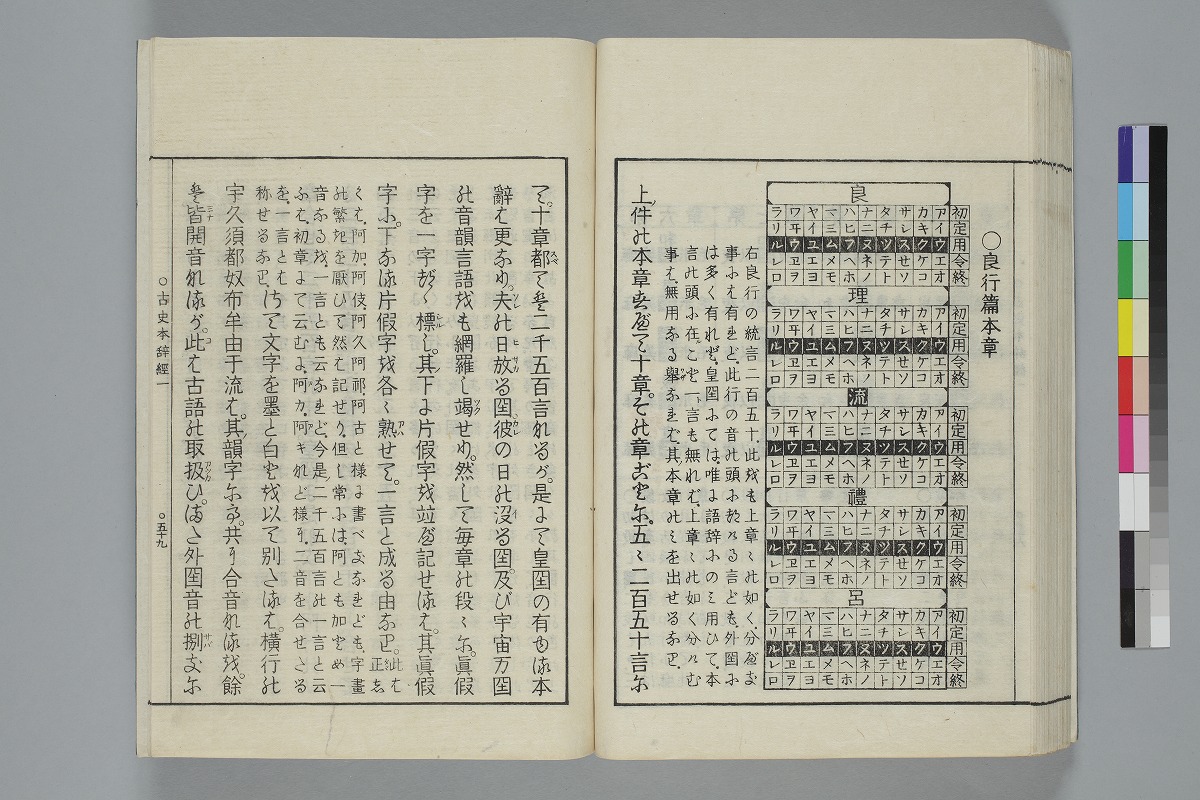 〇良行篇本章
良
初定用令終
アイウエオ
カキクケコ
サシスセソ
タチツテト
ナニヌネノ
ハヒフヘホ
マミムメモ
ヤイユエヨ
ワヰウヱヲ
ラリルレロ
理
初定用令終
アイウエオ
カキクケコ
サシスセソ
タチツテト
ナニヌネノ
ハヒフヘホ
マミムメモ
ヤイユエヨ
ワヰウヱヲ
ラリルレロ
流
初定用令終
アイウエオ
カキクケコ
サシスセソ
タチツテト
ナニヌネノ
ハヒフヘホ
マミムメモ
ヤイユエヨ
ワヰウヱヲ
ラリルレロ
禮
初定用令終
アイウエオ
カキクケコ
サシスセソ
タチツテト
ナニヌネノ
ハヒフヘホ
マミムメモ
ヤイユエヨ
ワヰウヱヲ
ラリルレロ
呂
初定用令終
アイウエオ
カキクケコ
サシスセソ
タチツテト
ナニヌネノ
ハヒフヘホ
マミムメモ
ヤイユエヨ
ワヰウヱヲ
ラリルレロ
右良行の統言二百五十.此をも上章〻の如く.分べき
事には有れど.此行の音の頭に於ける言ども.外囯に
は多く有れど.皇囯にては.唯に語辞にのミ用ひて.本
言の頭に在こと.一言も無れば.上章〻の如く分たむ
事は.無用なる擧なれば.其本章のミを出せるなり.
上件の本章すべて十章。その章ごとに。五〻二百五十言に
て。十章都ては二千五百言なるが。是にて皇囯の有ゆる本
辭は更なり。夫の日放る囯。彼の日の沒る囯。及び宇宙万囯
の音韻言語をも網羅し竭せり。然して毎章の段〻に。眞假
字を一字づゝ標し。其下に片假字を竝べ記せるは。其眞假
字に。下なる片假字を各〻熟せて。一言と成る由なり。此は正
くは.阿加.阿伎.阿久阿祁.阿古と様に書べきなれども.字畫
の繁きを厭ひて然は記せり.但し常には.阿とも加とも一
音なるを.一言とも云なれど.今是二千五百言の一言と云
ふは.初章にて云むに.阿カ.阿キなど様に.二音を合せたる
を.一言とは
称せるなり.さて文字を墨と白とを以て別たるは。橫行の
宇久須都奴布牟由于流は。其韻字にて。共に合音なるを。餘
は皆開音なるが。此は古語の取扱ひ。また外囯音の捌きに
〇古史本辞經一
〇五十九